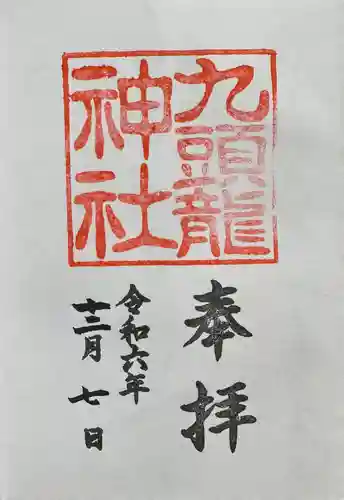 九頭龍
神社
奉拝
令和六年
十二月七日